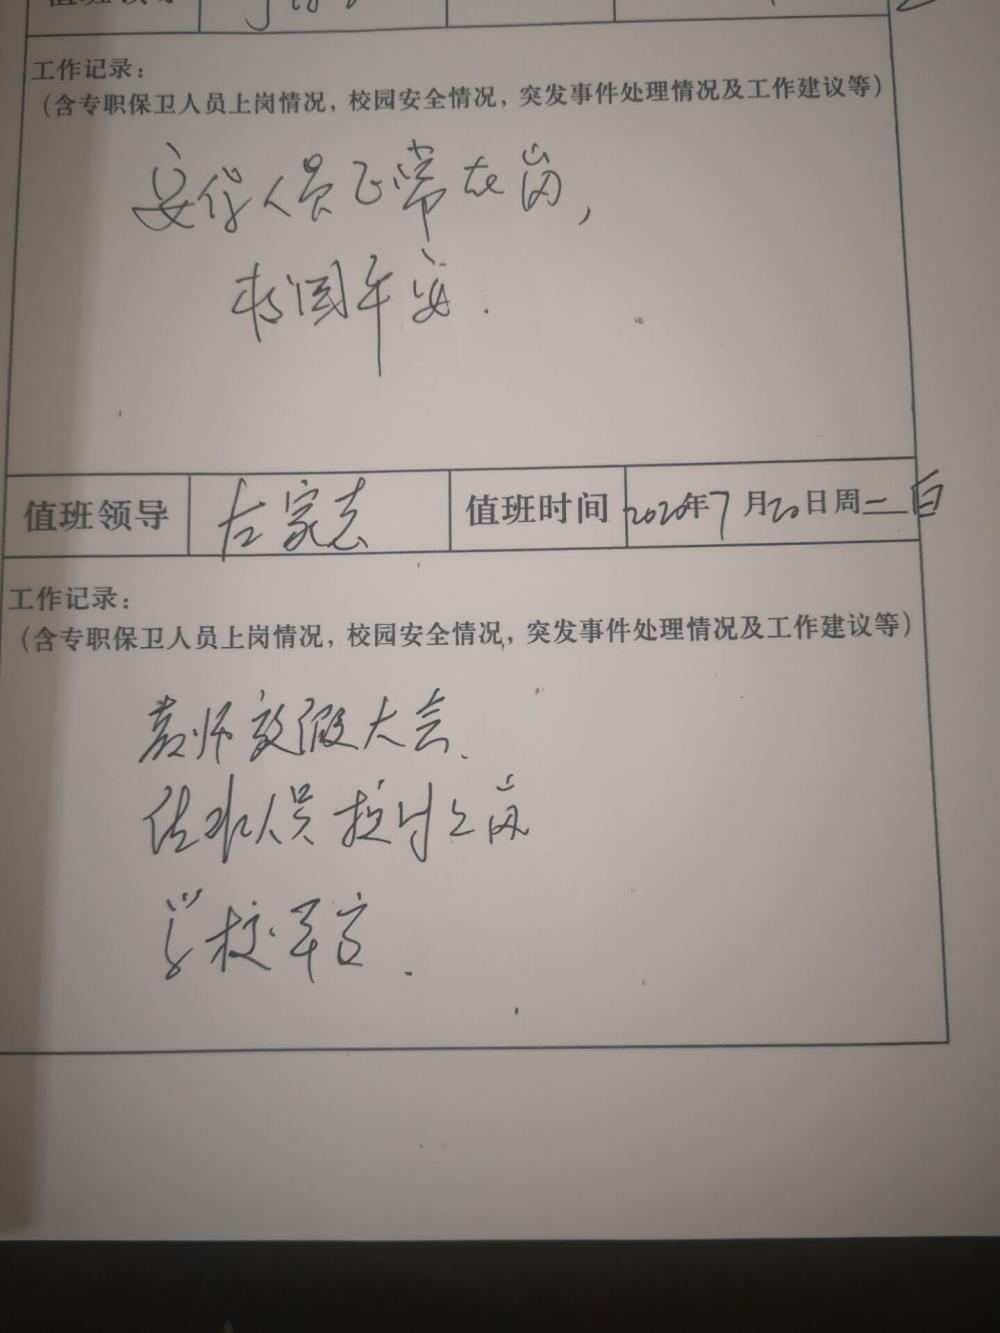 值班领导
工作记录：
（含专职保卫人员上岗情况，校园安全情况，突发事件处理情况及工作建议等）
安保人员正常在岗，
校园平安.
值班领导 左家志 值班时间 2020年7月20日周二白
工作记录：
（含专职保卫人员上岗情况，校园安全情况，突发事件处理情况及工作建议等）
教师放假大会.
人员按时上岗
学校平安.